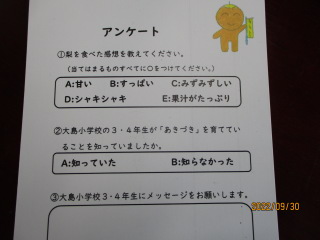 アンケート
①梨を食べた感想を教えてください。
（当てはまるものすべてに〇をつけてください。）
A:甘い　B:すっぱい　C:みずみずしい
D:シャキシャキ　E:果汁がたっぷり
②大島小学校の３・４年生が「あきづき」を育ててい
ることを知っていましたか。
A:知っていた　B:知らなかった
③大島小学校３・４年生にメッセージをお願いします。
2022/09/30